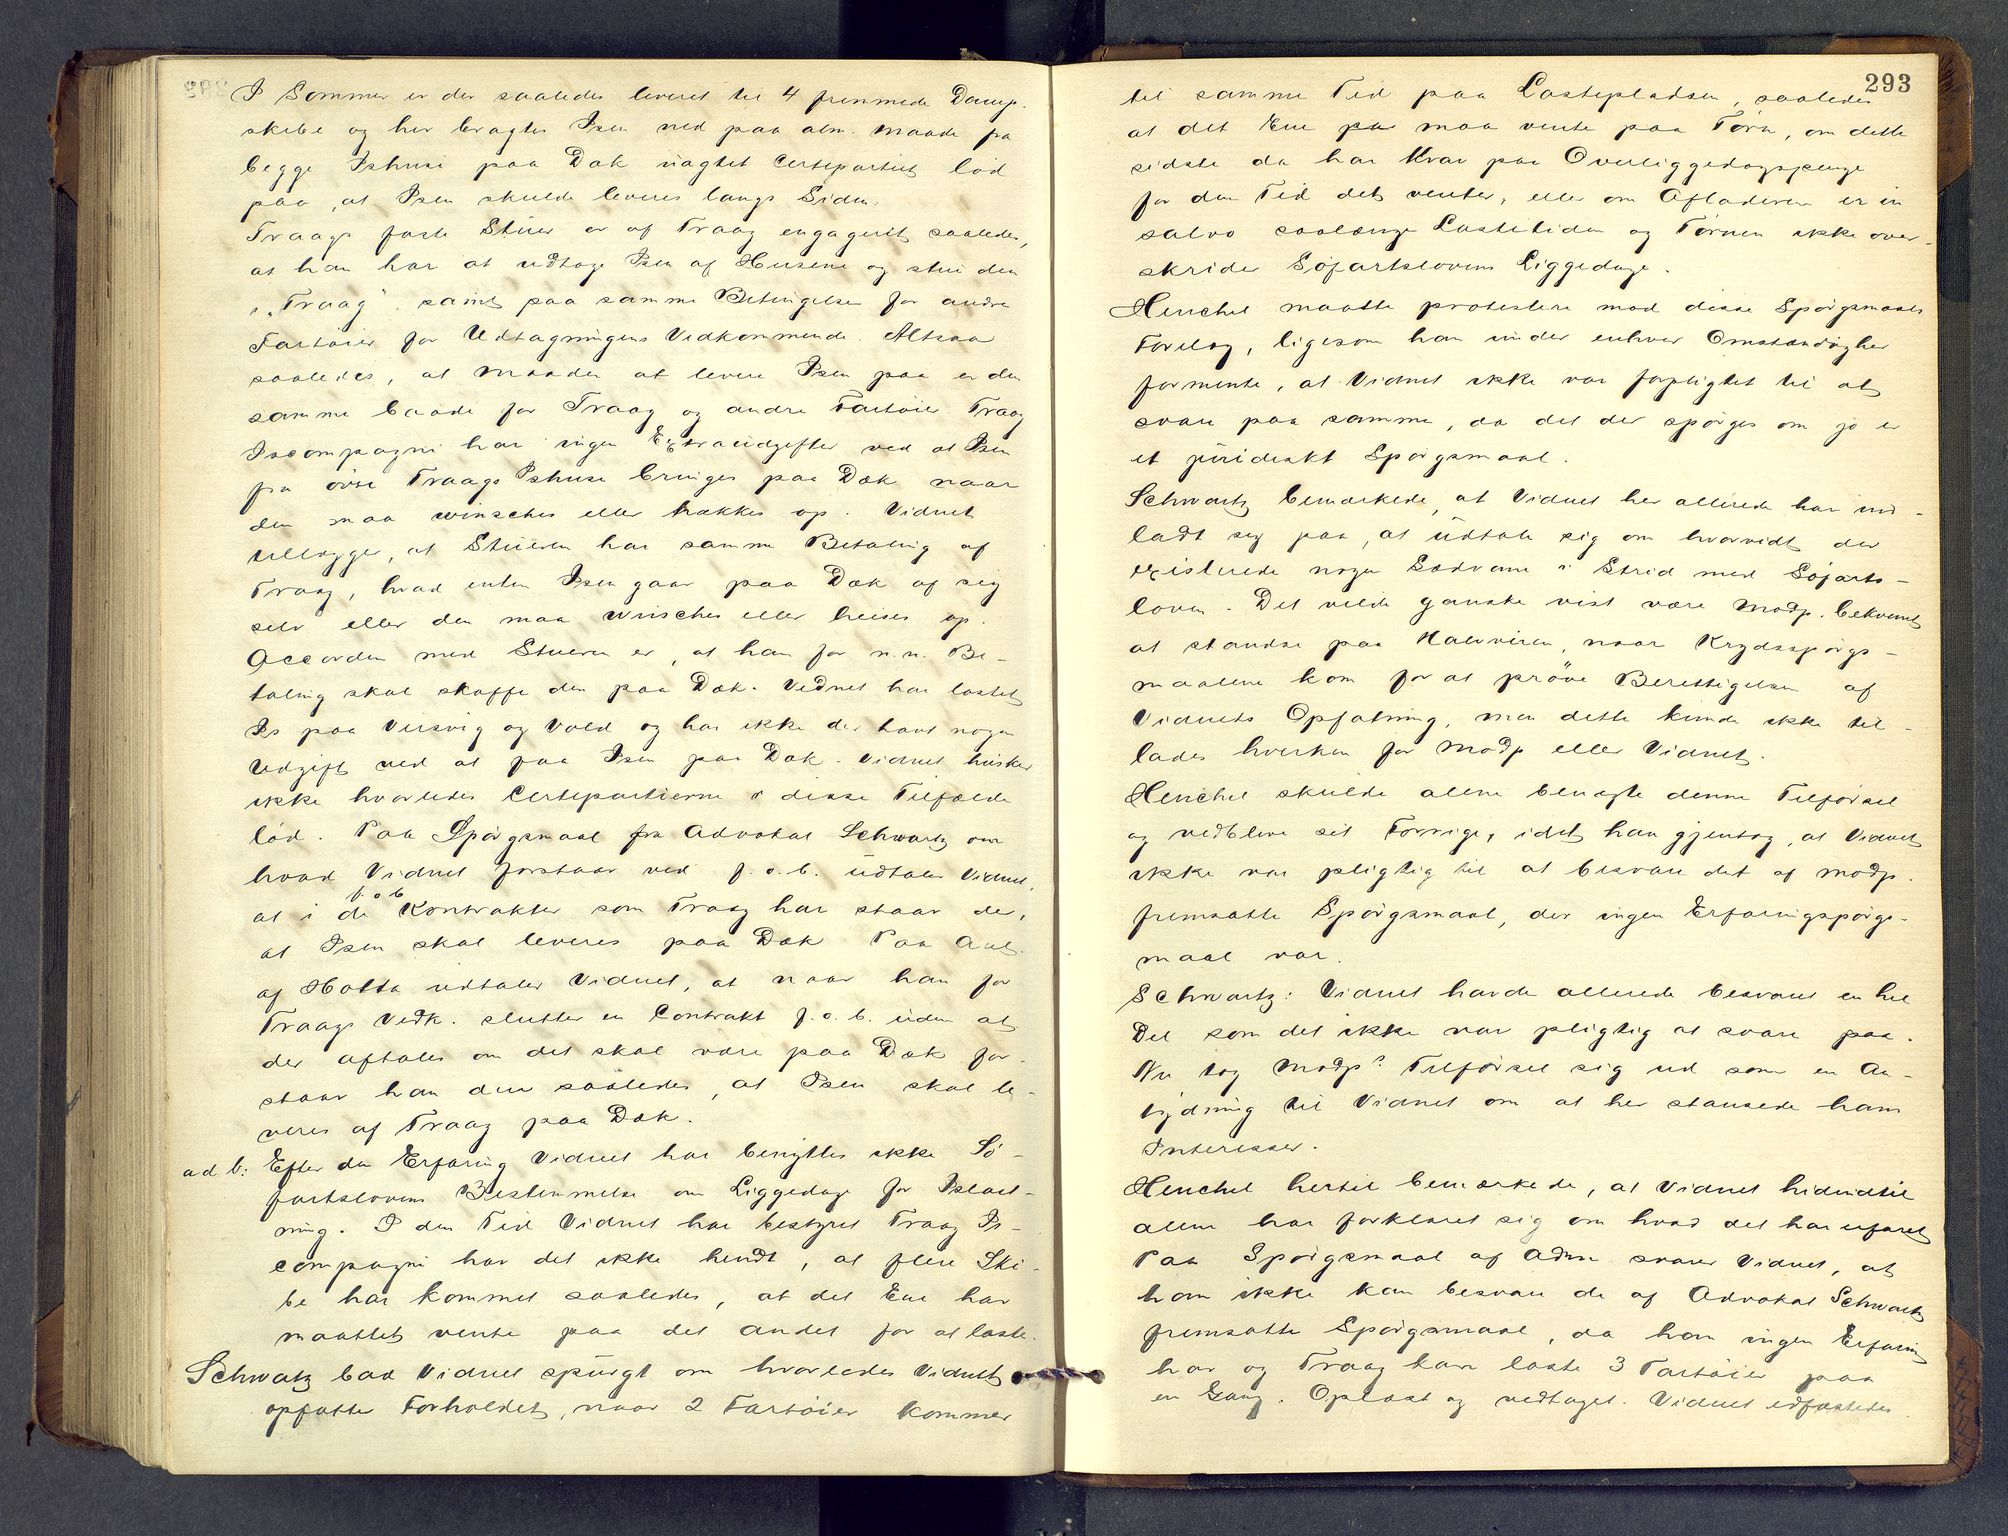 I Sommer er der saaledes leveret til 4 fremmede Damp-
skibe og her bragtes Isen ned paa alm. Maade fra
begge Ishuse paa Dæk uagtet Certepartiet lød
paa, at Isen skulde leveres langs Siden.
Traags faste Stuer er af Traag engageret saaledes,
at han har at udtage Isen af Husene og stue den
i „Traag“, samt paa samme Betingelse for andre
Fartøier for Udtagningens Vedkommende. Altsaa
saaledes, at Maaden at levere Isen paa er den
samme baade for Traag og andre Fartøier. Traag
Iscompagni har ingen Extraudgifter ved at Isen
fra øvre Traags Ishuse bringes paa Dæk naar
den maa winsches eller hækkes op. Vidnet
tillægger, at Stueren har samme Betaling af
Traag, hvad enten Isen gaar paa Dæk af sig
selv eller den maa winsches eller heises op.
Accorden med Stueren er, at han for n.n. Be-
taling skal skaffe den paa Dæk. Vidnet har lastet
Is paa Versvig og Vold og har ikke der havt nogen
Udgift ved at faa Isen paa Dæk. Vidnet husker
ikke hvorledes Certepartierne i disse Tilfælde
lød. Paa Spørgsmaal fra Advokat Schwartz om
hvad Vidnet forstaar ved f.o.b. udtaler Vidnet,
at i de f.o.b. Kontrakter som Traag har staar der,
at Isen skal leveres paa Dæk. Paa Anl.
af Hotta udtaler Vidnet, at naar han for
Traags Vedk. slutter en Contrakt f.o.b. uden at
der aftales om det skal være paa Dæk for-
staar han den saaledes, at Isen skal le-
veres af Traag paa Dæk.
ad b: Efter den Erfaring Vidnet har benyttes ikke Sø-
fartslovens Bestemmelse om Liggedage for Islast-
ning. I den Tid Vidnet har bestyret Traag Is-
compagni har det ikke hendt, at flere Ski-
be har kommet saaledes, at det Ene har
maattet vente paa det andet for at laste.
Schwatz bad Vidnet spurgt om hvorledes Vidnet
opfatte Forholdet, naar 2 Fartøier kommer
293
til samme Tid paa Lastepladsen, saaledes
at det Ene maa vente paa Tørn, om dette
sidste da har Krav paa Overliggedagspenge
for den Tid det venter, eller om Afladeren er in
salvo saalænge Lastetiden og Tørnen ikke over-
skride Søfartslovens Liggedage.
Henchel maatte protestere mod disse Spørgsmaals
Forelæg, ligesom han under enhver Omstændigher
formente, at Vidnet ikke var forpligtet til at
svare paa samme, da det der spørges om jo er
et juridiskt Spørgsmaal.
Schwartz bemærkede, at Vidnet her allerede har ind-
ladt sig paa, at udtale sig om hvorvidt der
existerede nogen Sædvane i Strid med Søfarts-
loven. Det vilde ganske vist være Modp. bekvemt
at standse paa Halvveien, naar Krydsspørgs-
maalene kom for at prøve Berettigelsen af
Vidnets Opfatning, men dette kunde ikke til-
lades hverken for Modp eller Vidnet.
Henchel skulde alene benægte denne Tilførsel
og vedblive sit Forrige, idet han gjentog, at Vidnet
ikke var pligtig til at besvare det af Modp.
fremsatte Spørgsmaal, der ingen Erfaringspørgs-
maal var.
Schwartz: Vidnet havde allerede besvaret en hel
Del som det ikke var pligtig at svare paa.
Nu tog Modps Tilførsel sig ud som en An-
tydning til Vidnet om at her stansede hans
Interesser.
Henchel hertil bemærkede, at Vidnet hidindtil
alene har forklaret sig om hvad det har erfaret
Paa Spørgsmaal af Adm. svarer Vidnet, at
han ikke kan besvare de af Advokat Schwartz
fremsatte Spørgsmaal, da han ingen Erfaring
har og Traag kan laste 3 Fartøier paa
en Gang. Oplæst og vedtaget. Vidnet edfæstedes